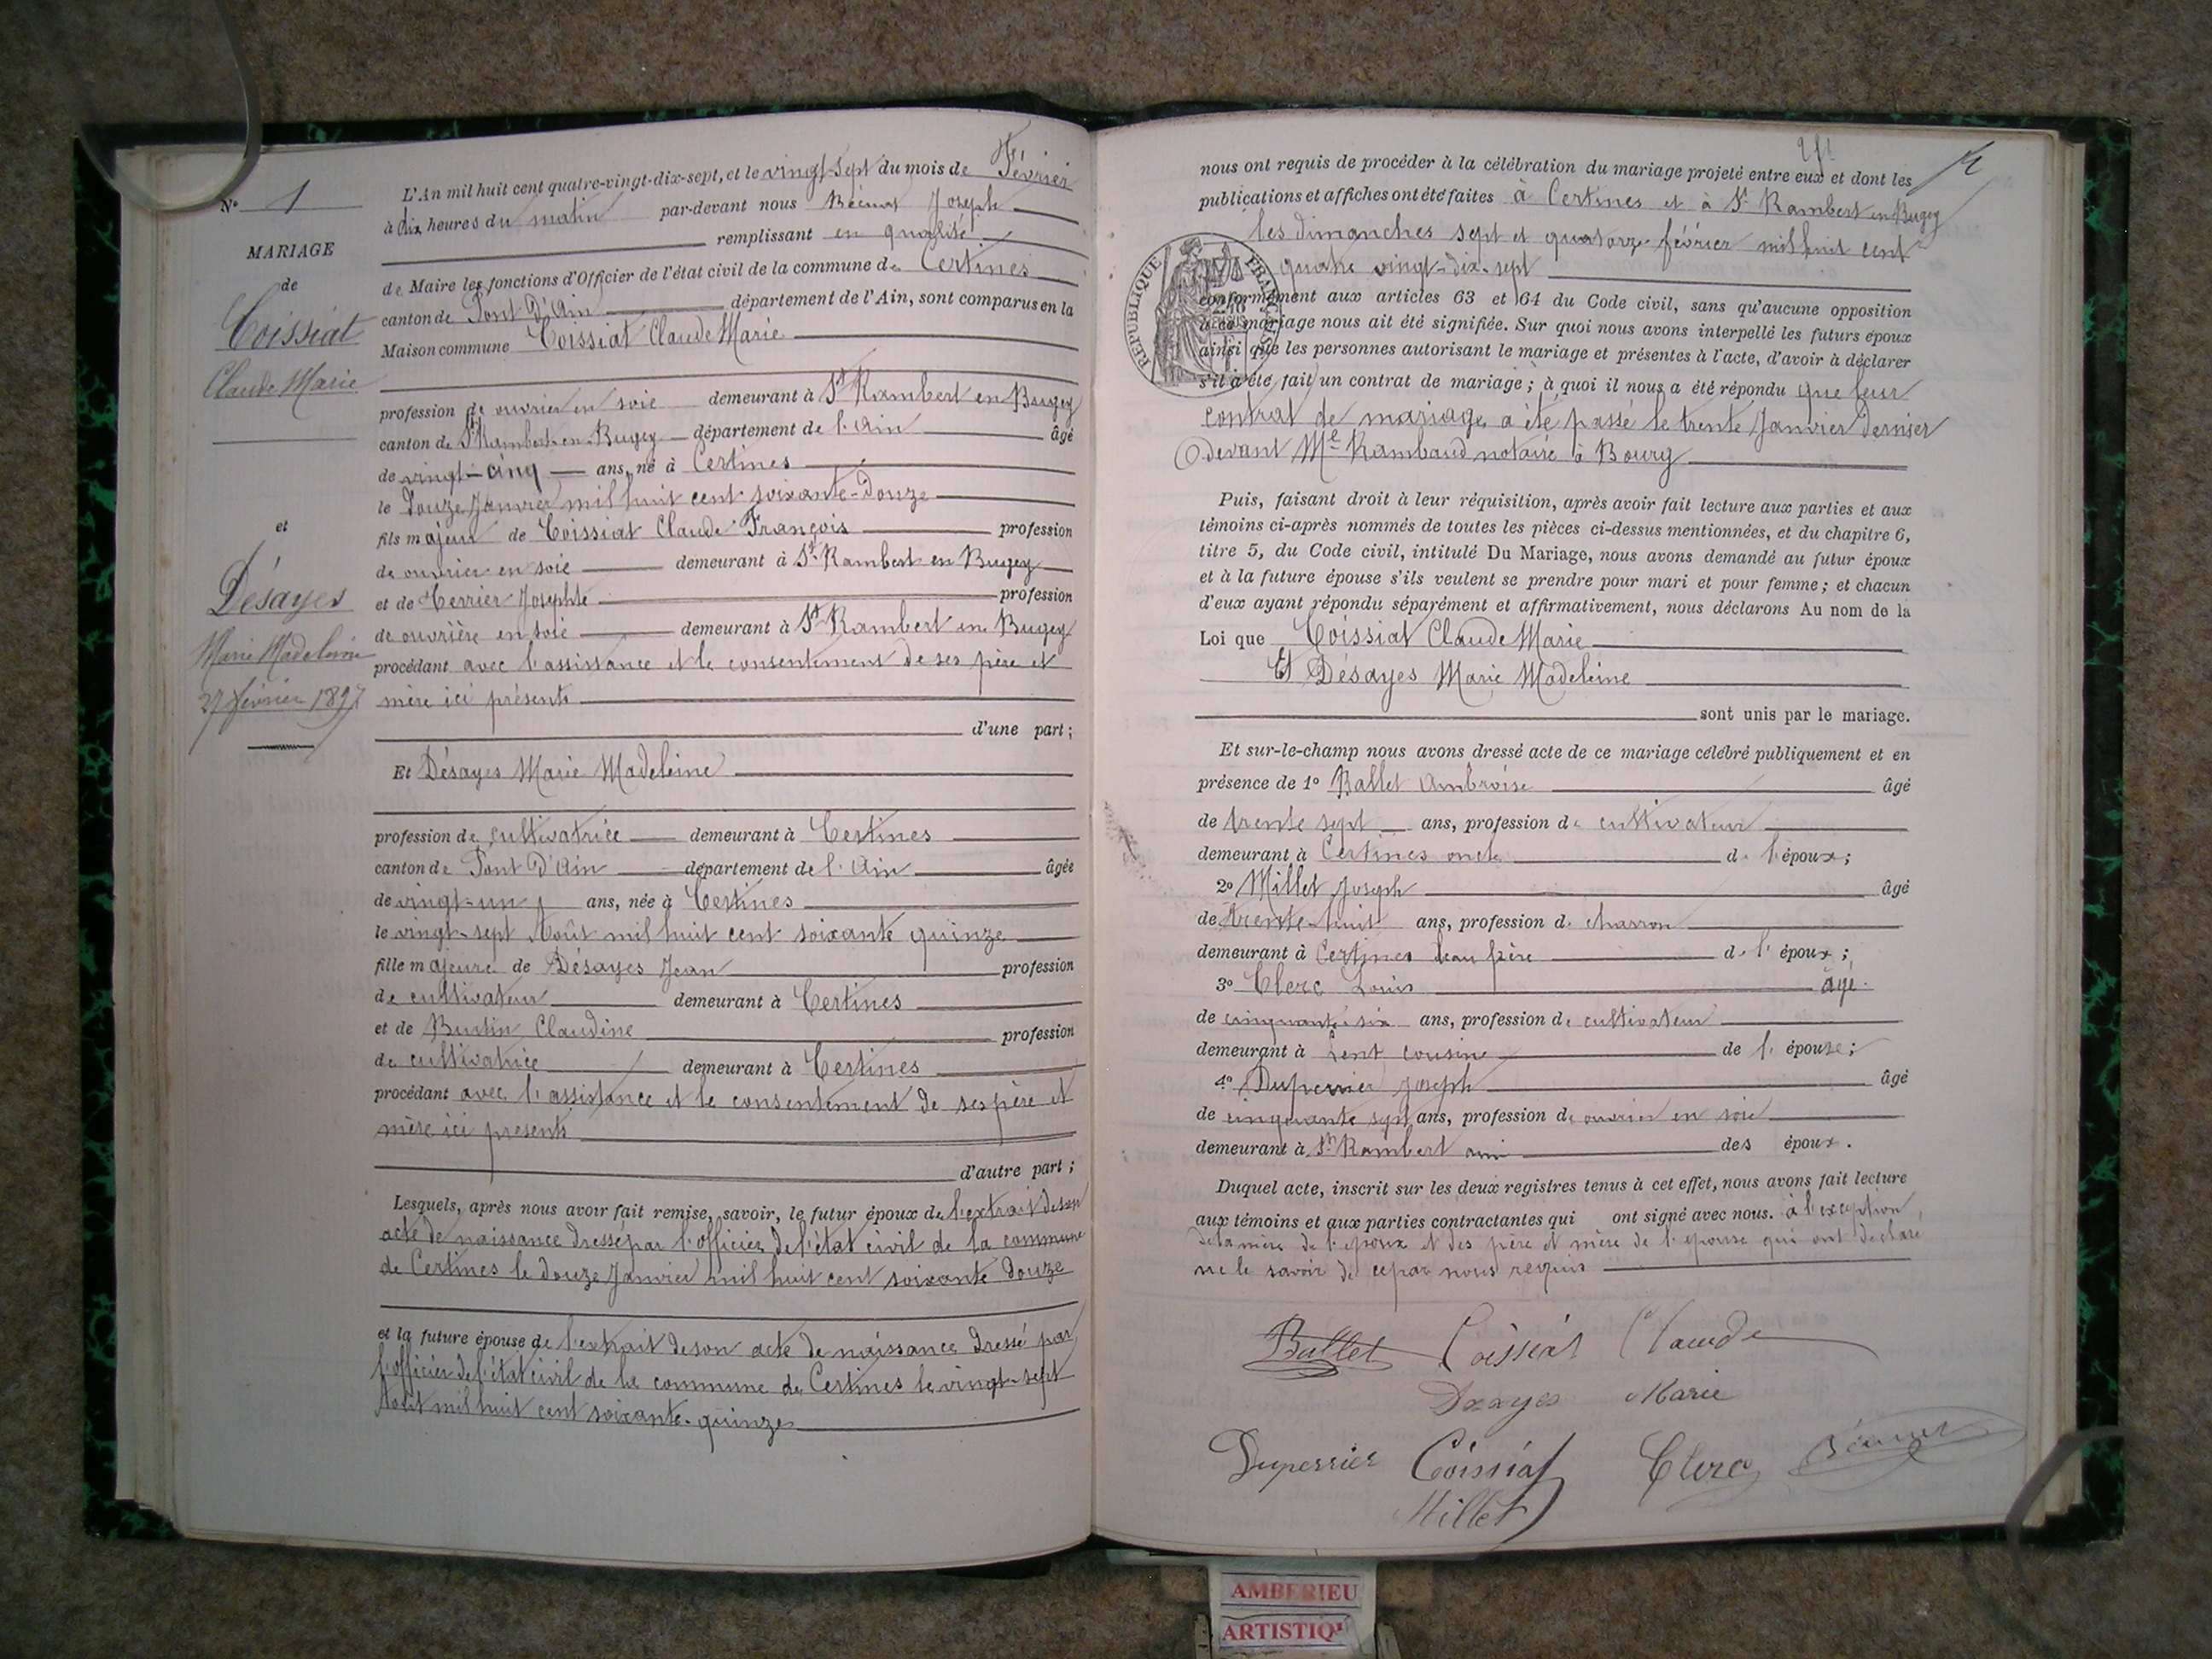 N° 1
MARIAGE
de
Coissiat
Claude Marie
et
Désayes
Marie Madeleine
27 février 1897
L'An mil huit cent quatre-vingt-dix-sept, et le vingt-sept du mois de Février
à dix heures du matin par-devant nous Bécuat Joseph
remplissant en qualité
de Maire les fonctions d'Officier de l'état civil de la commune de Certines
canton de Pont D'Ain département de l'Ain, sont comparus en la
Maison commune Coissiat Claude Marie
profession de ouvrier en soie demeurant à St Rambert en Bugey
canton de St Rambert-en-Bugey département de l'Ain âgé
de vingt-cinq ans, né à Certines
le douze Janvier mil huit cent soixante-douze
fils majeur de Coissiat Claude François profession
de ouvrier en soie demeurant à St Rambert en Bugey
et de Perrier Josephte profession
de ouvrière en soie demeurant à St Rambert en Bugey
procédant avec l'assistance et le consentement de ses père et
mère ici présents
d'une part ;
Et Désayes Marie Madeleine
profession de cultivatrice demeurant à Certines
canton de Pont D'Ain département de l'Ain âgée
de vingt-un ans, née à Certines
le vingt-sept Août mil huit cent soixante quinze
fille majeure de Désayes Jean profession
de cultivateur demeurant à Certines
et de Burtin Claudine profession
de cultivatrice demeurant à Certines
procédant avec l'assistance et le consentement de ses père et
mère ici présents
d'autre part ;
Lesquels, après nous avoir fait remise, savoir, le futur époux de l'extrait de son
acte de naissance dressé par l'officier de l'état civil de la commune
de Certines le douze Janvier mil huit cent soixante douze
et la future épouse de l'extrait de son acte de naissance dressé par
l'officier de l'état civil de la commune de Certines le vingt-sept
Août mil huit cent soixante-quinze
nous ont requis de procéder à la célébration du mariage projeté entre eux et dont les
publications et affiches ont été faites à Certines et à St Rambert en Bugey
les dimanches sept et quatorze février mil huit cent
quatre vingt-dix-sept
RÉPUBLIQUE FRANÇAISE
conformément aux articles 63 et 64 du Code civil, sans qu'aucune opposition
à ce mariage nous ait été signifiée. Sur quoi nous avons interpellé les futurs époux
ainsi que les personnes autorisant le mariage et présentes à l'acte, d'avoir à déclarer
s'il a été fait un contrat de mariage ; à quoi il nous a été répondu que leur
contrat de mariage a été passé le trente Janvier dernier
devant Me Rambaud notaire à Bourg
Puis, faisant droit à leur réquisition, après avoir fait lecture aux parties et aux
témoins ci-après nommés de toutes les pièces ci-dessus mentionnées, et du chapitre 6,
titre 5, du Code civil, intitulé Du Mariage, nous avons demandé au futur époux
et à la future épouse s'ils veulent se prendre pour mari et pour femme ; et chacun
d'eux ayant répondu séparément et affirmativement, nous déclarons Au nom de la
Loi que Coissiat Claude Marie
Et Désayes Marie Madeleine
sont unis par le mariage.
Et sur-le-champ nous avons dressé acte de ce mariage célébré publiquement et en
présence de 1° Ballet Ambroise âgé
de trente sept ans, profession de cultivateur
demeurant à Certines oncle de l'époux ;
2° Millet Joseph âgé
de trente-huit ans, profession de charron
demeurant à Certines beau frère de l'époux ;
3° Clerc Louis âgé
de cinquante-six ans, profession de cultivateur
demeurant à Lent cousin de l'épouse ;
4° Duperrier Joseph âgé
de cinquante sept ans, profession de ouvrier en soie
demeurant à St Rambert ami des époux.
Duquel acte, inscrit sur les deux registres tenus à cet effet, nous avons fait lecture
aux témoins et aux parties contractantes qui ont signé avec nous. à l'exception
de la mère de l'époux et des père et mère de l'épouse qui ont déclaré
ne le savoir de ce par nous requis
Ballet Coissiat Claude
Dezayes Marie
Duperrier Coissiat Clerc Bécuat
Millet
AMBERIEU
ARTISTIQ